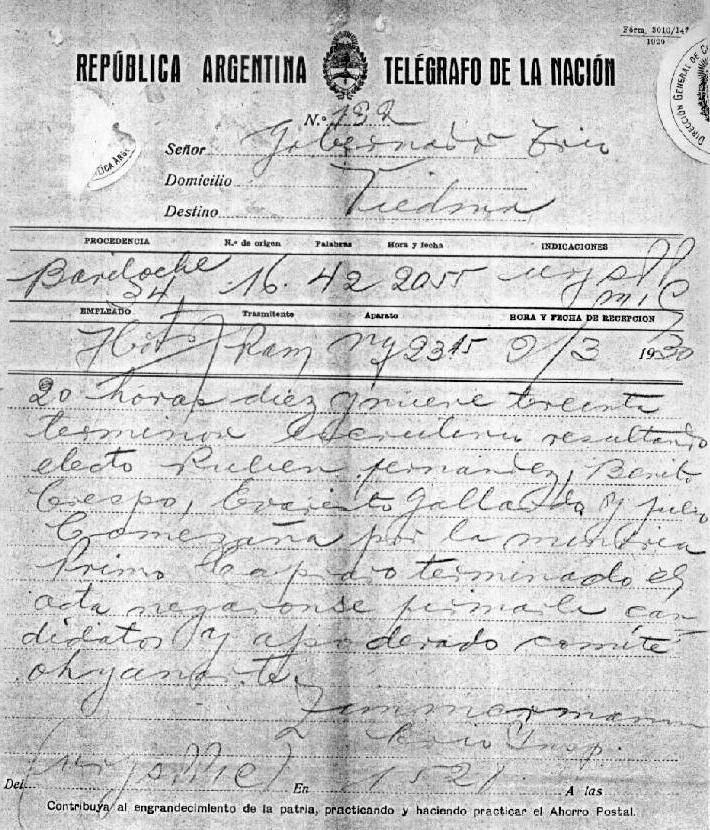 Fórm. 3010/147
1929
REPÚBLICA ARGENTINA TELÉGRAFO DE LA NACIÓN
DIRECCIÓN GENERAL DE C
N.º 192
Señor Gobernador Trio
Domicilio
Destino Viedma
PROCEDENCIA N.º de origen Palabras Hora y fecha INDICACIONES
Bariloche 16. 42 2055
34
EMPLEADO Trasmitente Aparato HORA Y FECHA DE RECEPCION
Ram 2315 9/3 1930
20 horas diez y nueve treinta
terminon escrutinio resultando
electo Ruben fernandez, Benito
Crespo, Evaristo Gallardo y julio
Comezaña por la minoria
Primo Capraro terminado el
acta negaronse firmarla can
didatos y apoderado comite
Zimmermann
Crio Insp.
Del En 1521 A las
Contribuya al engrandecimiento de la patria, practicando y haciendo practicar el Ahorro Postal.